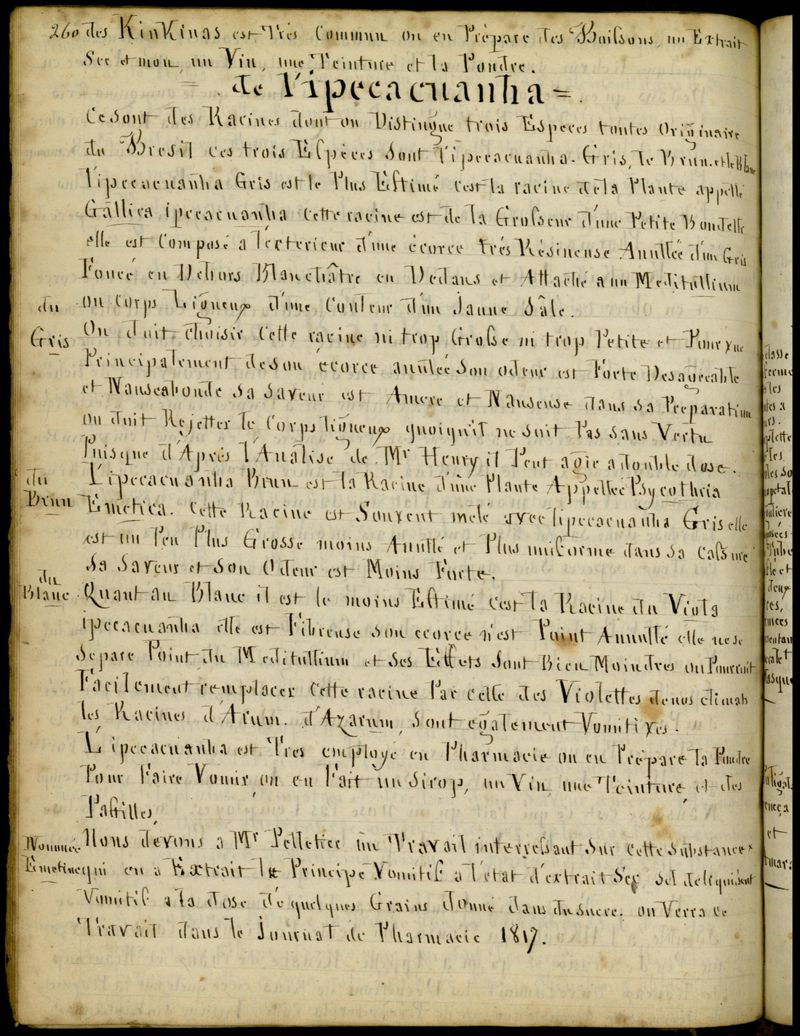 260 des KinKinas est Très Commun on en Prépare des Boissons, un Extrait
Sec et mou, un Vin, une Teinture et la Poudre.
= . de l'ipecacuanha = .
Ce sont des Racines dont on Distingue trois Especes toutes Originaire
du Bresil ces trois Especes Sont l'ipecacuanha. Gris, le Brun. et le Blanc
l'ipecacuanha Gris est le Plus Estimé c'est la racine de la Plante appellé
Gallica ipecacuanha cette racine est de la Grosseur d'une Petite
elle est Composé a l'exterieur d'une écorce très Résineuse Annullée d'un Gris
Foncé en Dehors Blanchâtre en Dedans et Attaché a un Meditullium
ou Corps Ligneux d'une Couleur d'un Jaune Sâle.
du
Gris
On doit choisir Cette racine ni trop Grosse ni trop Petite et Pourvue
Principalement de son écorce annulée Son odeur est Forte Desagreable
et Nauseabonde Sa Saveur est Amere et Nauseuse dans sa Preparation
on doit Rejetter le Corps ligneux quoiqu'il ne Soit Pas Sans Vertu
Puisque d'Après l'Analise de Mr Henry il Peut agir a double dose.
du
Brun
L'ipecacuanha Brun est la Racine d'une Plante Appellée Psycothria
Emetica. Cette Racine est Souvent melé avec lipecacuanha Gris elle
est un Peu Plus Grosse moins Anullé et Plus uniforme dans Sa Cassure
Sa Saveur et Son Odeur est Moins Forte.
du
Blanc
Quant au Blanc il est le moins Estimé c'est la Racine du Viola
ipecacuanha elle est Fibreuse Son ecorce n'est Point Annullé elle ne se
Separe Point du Meditullium et Ses Effets Sont Bien Moindres on Pourrait
Facilement remplacer Cette racine Par celle des Violettes de nos climats
les Racines d'Arum. d'Azarum, Sont également Vomitives.
L'ipecacuanha est Très employé en Pharmacie on en Prépare la Poudre
Pour Faire Vomir, on en Fait un Sirop, un Vin, une Teinture et des
Pastilles,
Nommée
Emetine
Nous devons a Mr Pelletier un Travail interressant Sur cette Substance
qui en a Extrait le Principe Vomitif a l'état d'extrait Sec Sel deliquescent
Vomitif a la dose de quelques Grains donné dans du Sucre. on Verra ce
Travail dans le Journal de Pharmacie 1817.